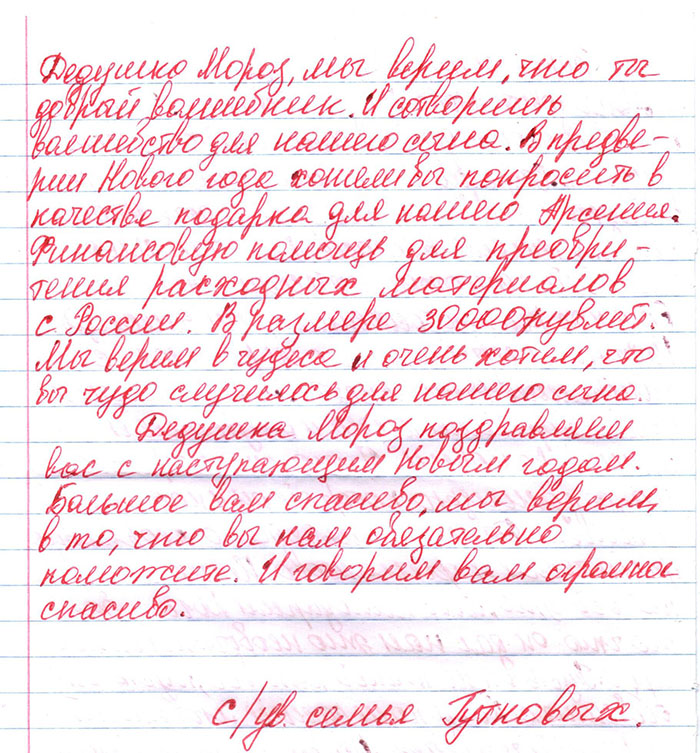 Дедушка Мороз, мы верим, что ты
добрый волшебник. И сотворишь
волшейство для нашего сына. В предве-
рии Нового года хотели бы попросить в
качестве подарка для нашего Арсения.
Финансовую помощь для преобри-
тения расходных материалов
с России. В размере 30000 рублей.
Мы верим в чудеса и очень хотим, что
бы чудо случилось для нашего сына.
Дедушка Мороз поздравляем
вас с наступающим Новым годом.
Большое вам спасибо, мы верим,
в то, что вы нам обязательно
поможите. И говорим вам огромное
спасибо.
С/ув. семья Гутновых.